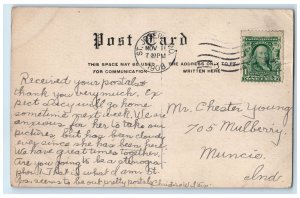 Post Card
THIS SPACE MAY BE USED
FOR COMMUNICATION
THE ADDRESS ONLY TO BE
WRITTEN HERE
NOV 11
7 PM
1908
Received your postals
thank you very much. Ex
pect Lucy will go home
sometime next week. We are
anxious for her to take our
pictures, but has been cloudy
every since she has been here.
We have great times together.
Are you going to be a stenogra-
pher? That is what I am
seems to be out pretty postals
Mr. Chester Young
705 Mulberry.
Muncie
Ind